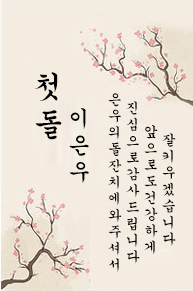 첫돌
이은우
은우의 돌잔치에 와주셔서
진심으로 감사드립니다
앞으로도 건강하게
잘 키우겠습니다